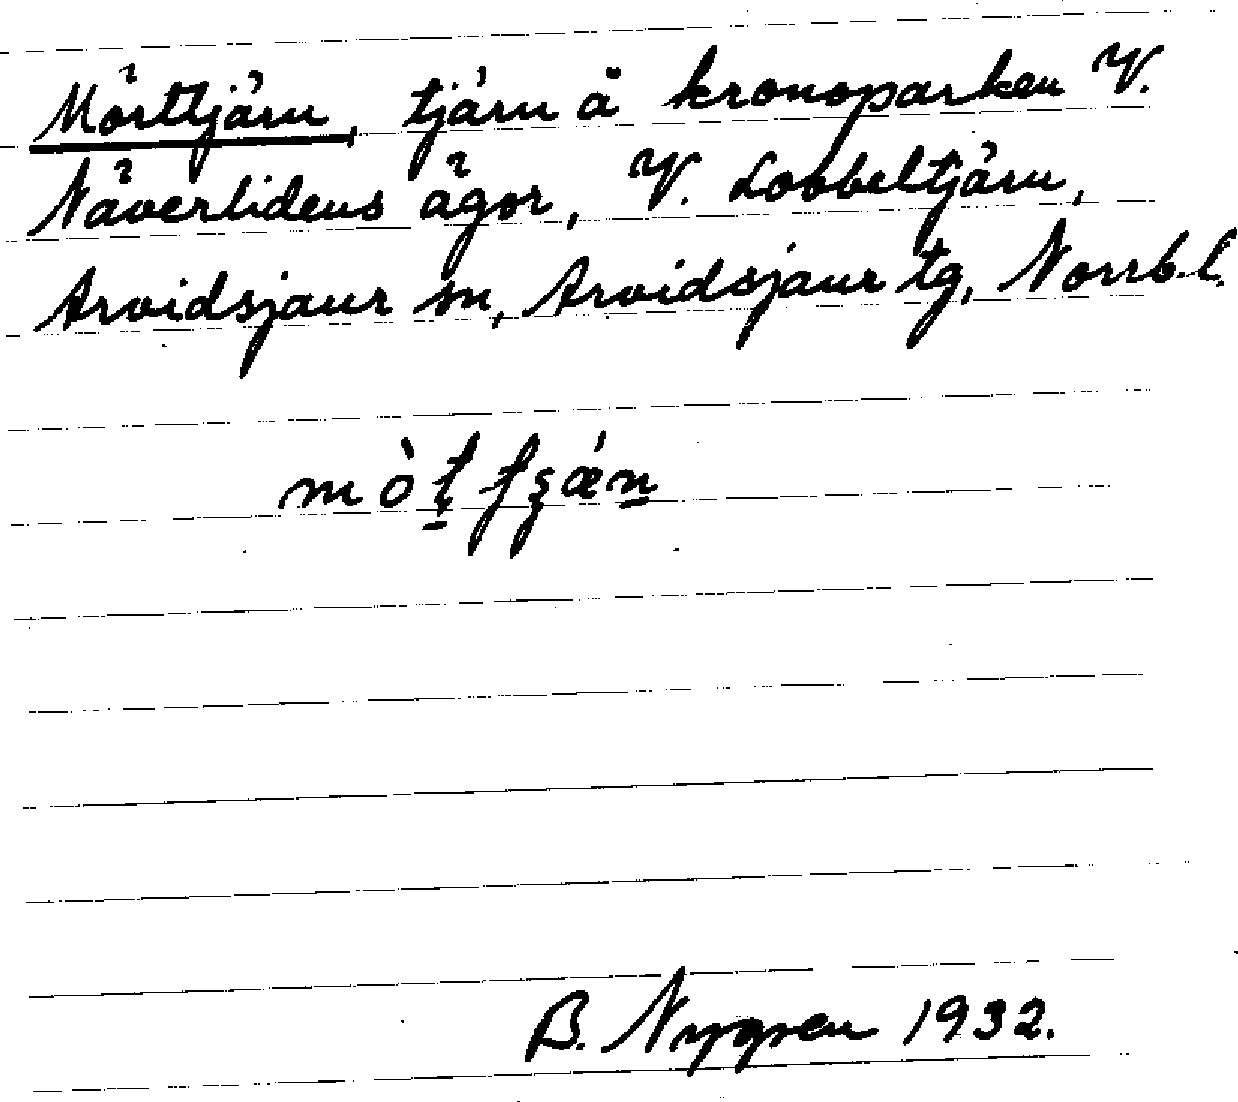 Mörttjärn, tjärn å kronoparken V.
Näverlidens ägor, V. Lobbeltjärn,
Arvidsjaur sn, Arvidsjaur tg, Norrb.l.
B. Nygren 1932.